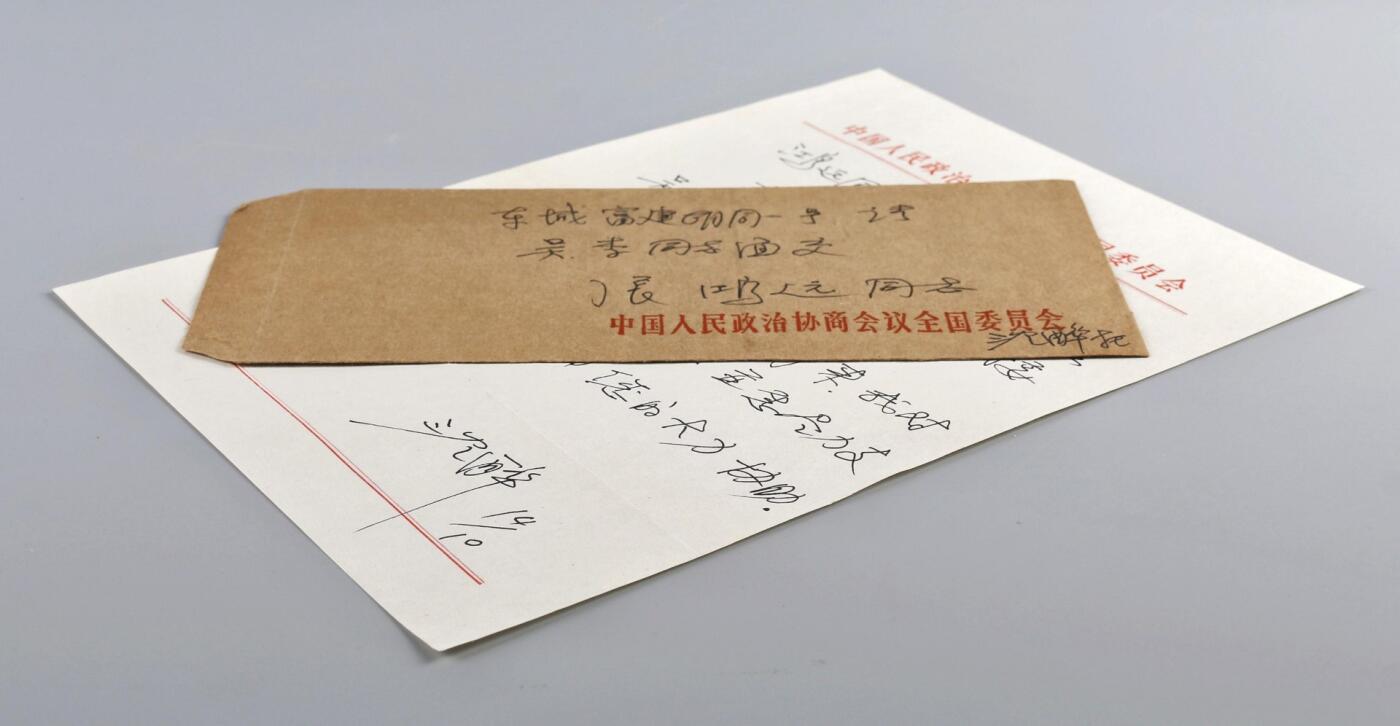 东城富建胡同一号 请
吴季同志面交
张鸿远同志
中国人民政治协商会议全国委员会
沈醉托
中国人民政治
国委员会
鸿远同
吴
果.我对
并愿尽力支
您的大力协助.
沈醉
14/10